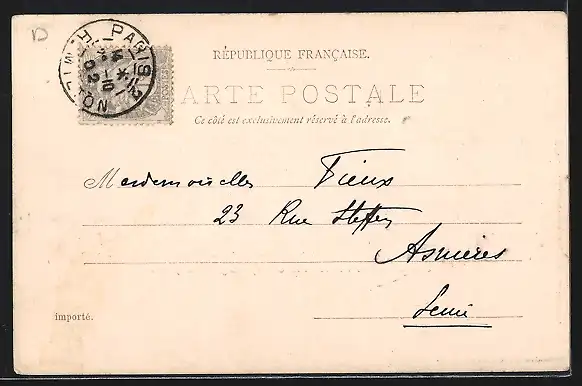 D
PARIS 12
R. MILTON
10
02
RÉPUBLIQUE FRANÇAISE.
CARTE POSTALE
Ce côté est exclusivement réservé à l'adresse.
Mesdemoiselles Fieux
23 Rue Steffen
Asnières
Seine
importé.